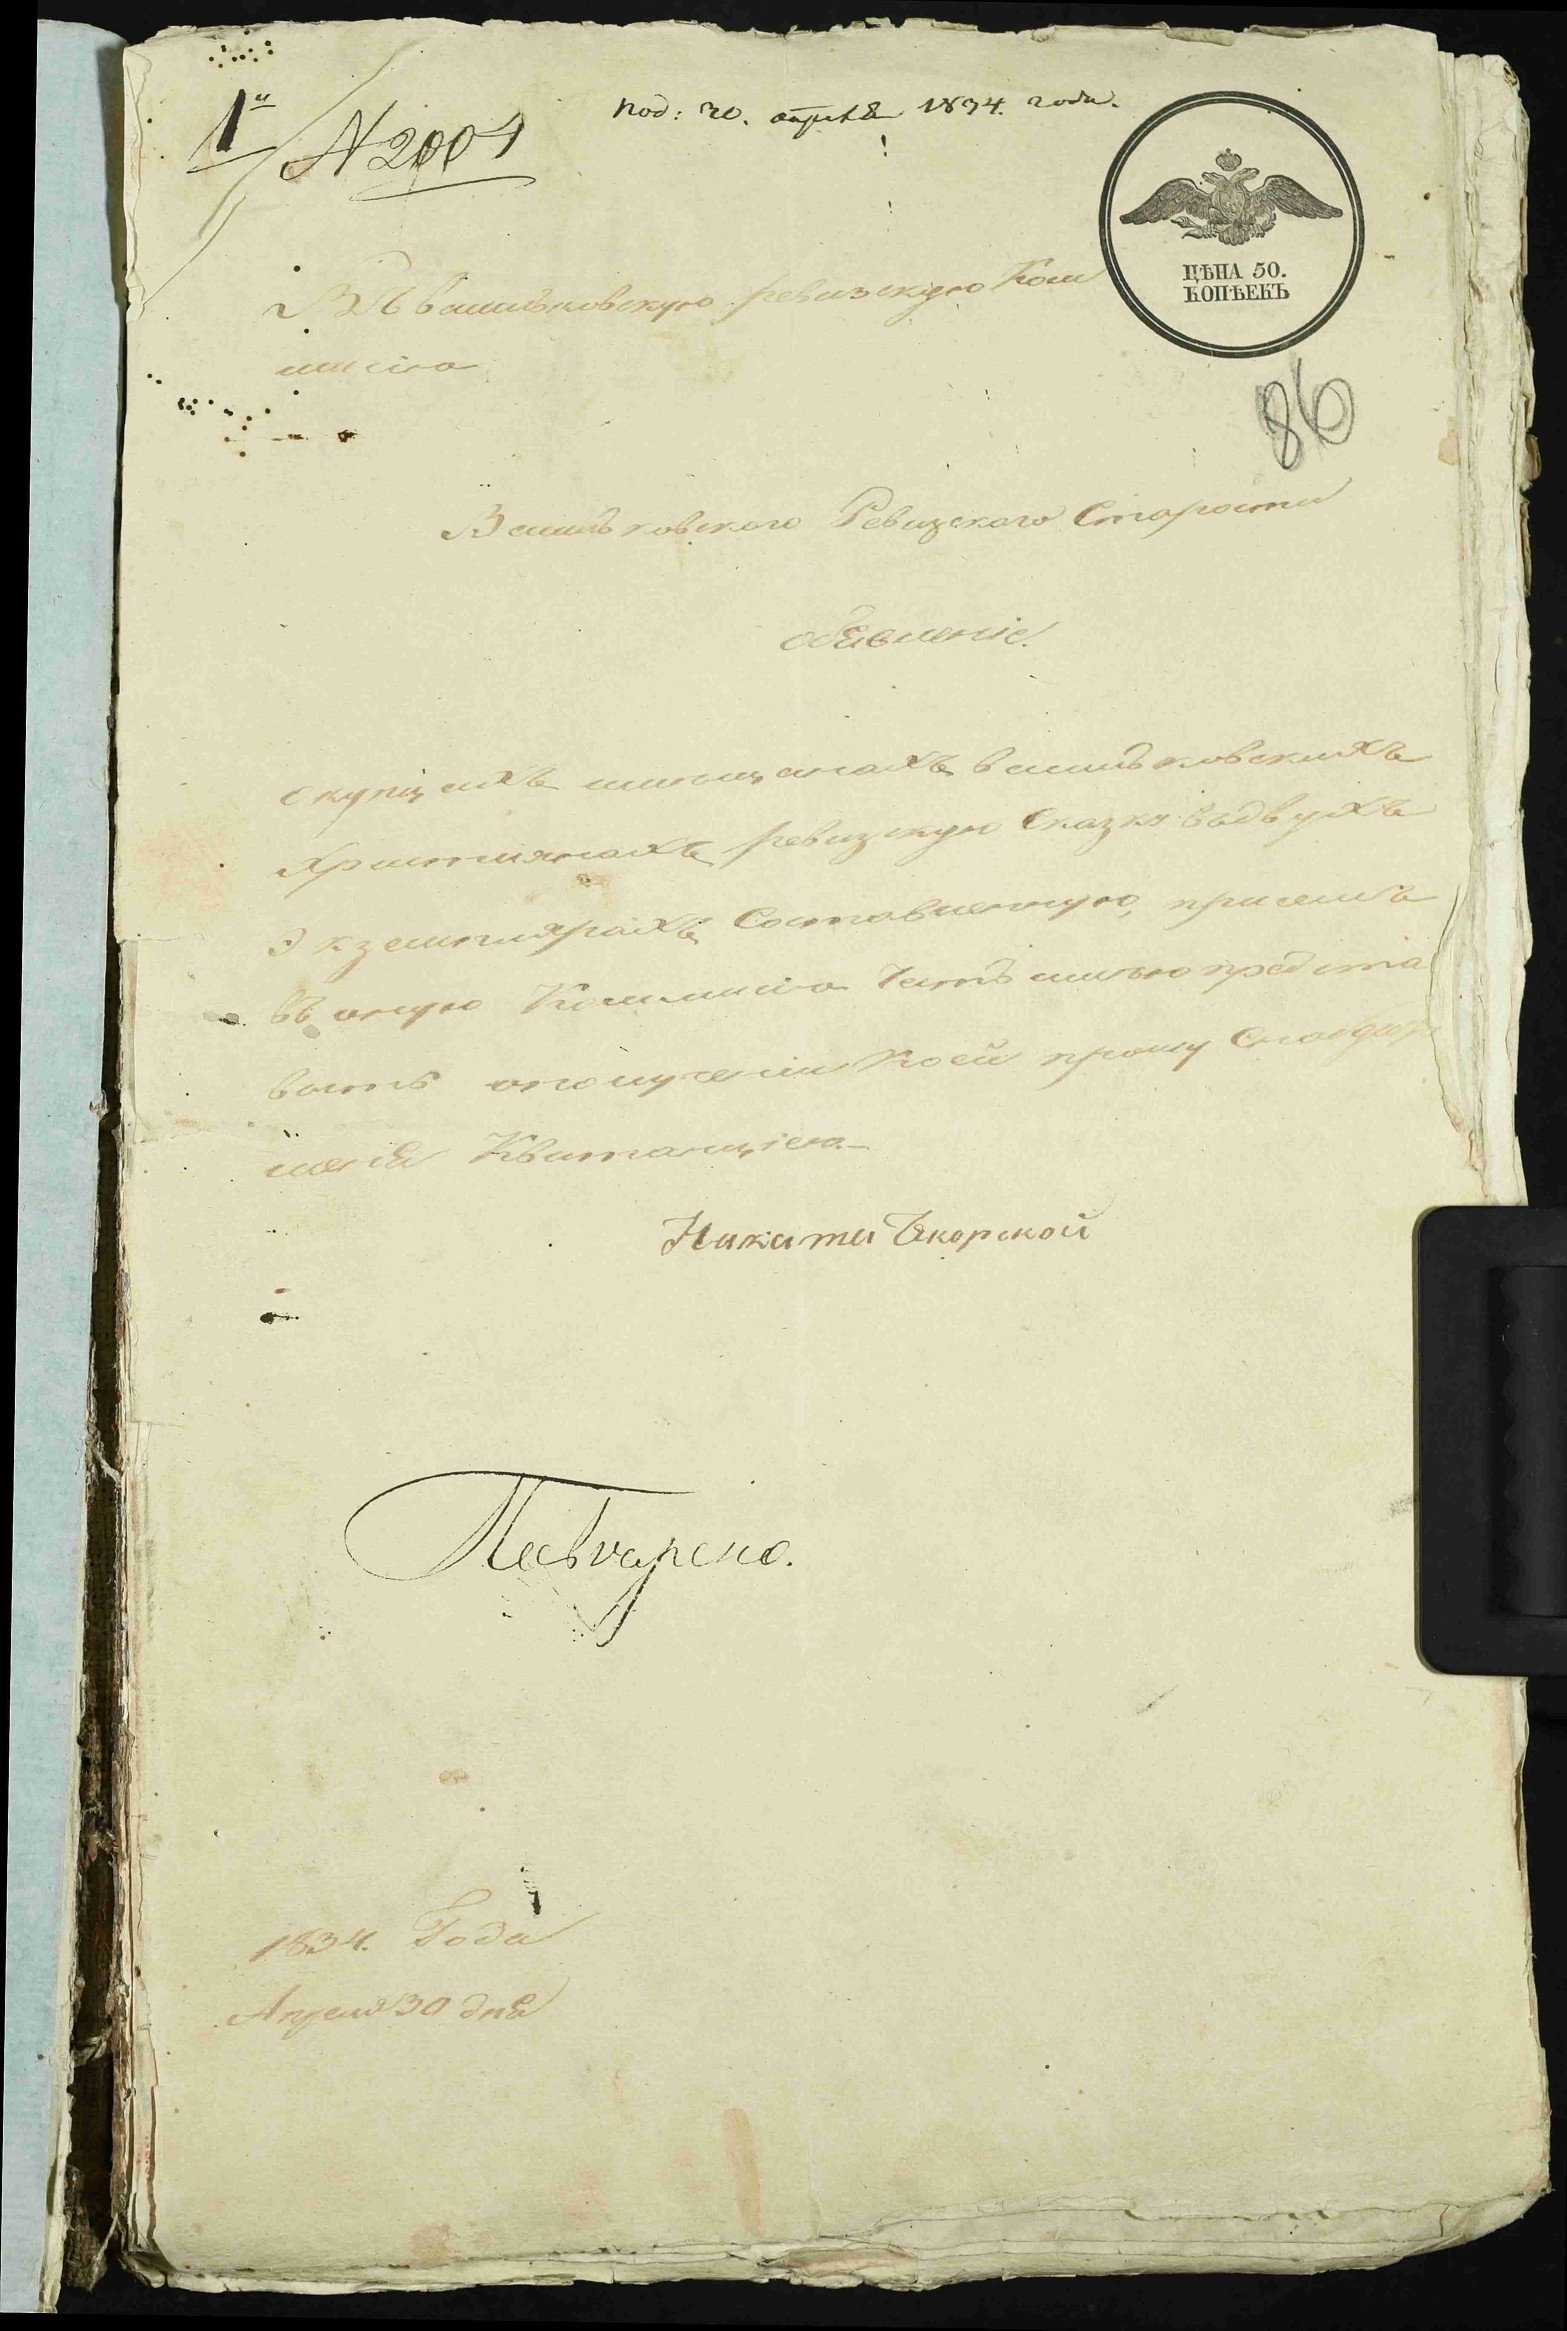 1й
№ 2001
под: 30. апреля 1834. года.
ЦѢНА 50.
КОПѢЕКЪ
86
Въ васильковскую ревизскую Ком
мисію
Васильковского Ревизского Старосты
объявленіе.
О купцахъ мищанахъ васильковскихъ
Християнахъ ревизскую Сказку въ двухъ
Экземплярахъ Составленную, при семъ
въ оную Коммисію Честь имею предста
вить о получении Коей прошу Снабдить
меня Квитанціею.
Никита Якорской
1834. Года
Апреля 30 дня